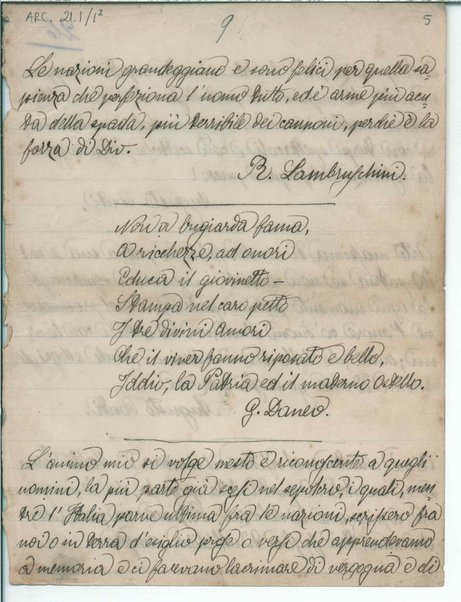 ARC. 21.1/1²
9
5
Le nazioni grandeggiano e sono felici per quella sa=
pienza che perfeziona l'uomo tutto, ed è arme più acu=
ta della spada, più terribile dei cannoni, perché è la
forza di Dio.
R. Lambruschini.
Non a bugiarda fama,
A ricchezze, ad onori
Educa il giovinetto –
Stampa nel caro petto
I tre divini amori
Che il viver fanno riposato e bello,
Iddio, la Patria ed il materno ostello.
G. Daneo.
L'animo mio si volge mesto e riconoscente a quegli
uomini, la più parte già scesi nel sepolcro, i quali, men=
tre l'Italia parve ultima fra le nazioni, scrissero fra
noi o in terra d'esiglio prose o versi che apprendevamo
a memoria e ci facevano lacrimare di vergogna e di